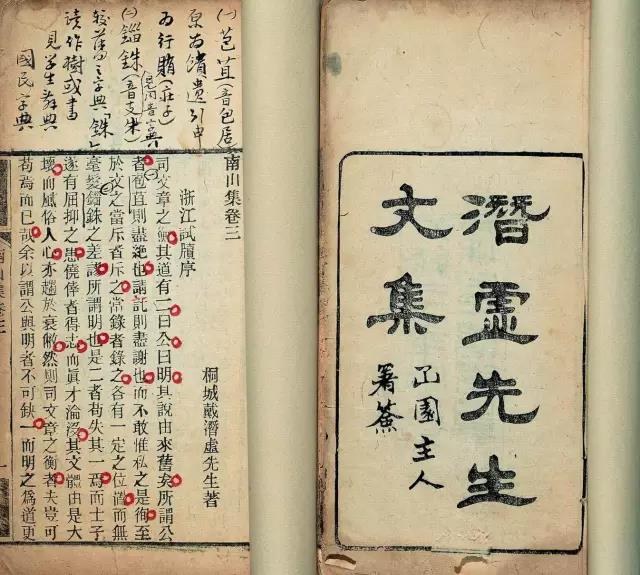 潛虛先生
文集
園主人
署簽
(一)苞苴(音包居)
原为馈遗引申
为行賄(莊子)
(二)錙銖(音支朱)
較舊之字典「銖」
读作樹或書
見学生辞典
國民字典
南山集卷三
浙江試牘序
桐城戴潛虛先生著
司文章之衡其道有二曰公曰明其說由來舊矣所謂公
者苞苴則盡絶也請託則盡謝也而不敢惟私之是徇至
於文之當斥者斥之當錄者錄之各有一定之位置而無
毫髮錙銖之差謬所謂明也是二者苟失其一焉而士子
遂有屈抑之患僥倖者得志而眞才淪沒其文體由是大
壞而風俗人心亦趨於衰敝然則司文章之衡者夫豈可
苟焉而已哉余以謂公與明者不可缺一而明之爲道更